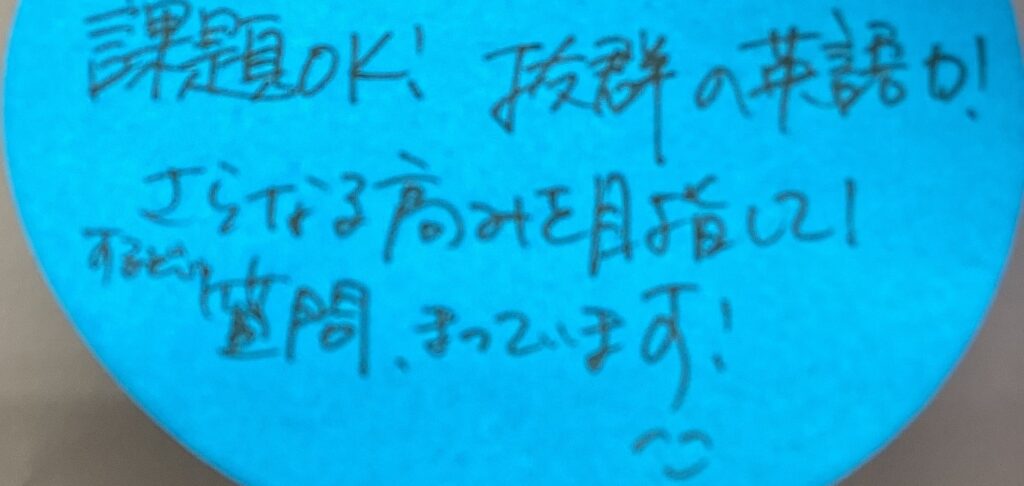 課題OK! 抜群の英語力!
さらなる高みを目指して!
するどい
質問、まっています!